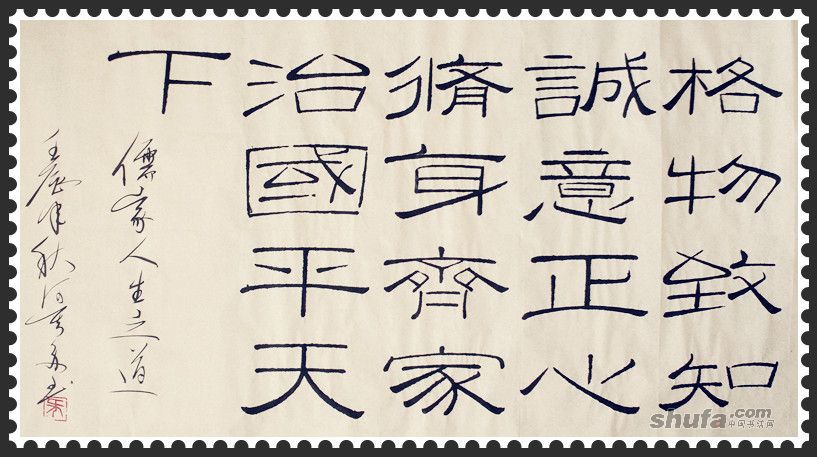 格物致知
誠意正心
脩身齊家
治國平天
下
儒家人生之道
shufa.com
中国书法网